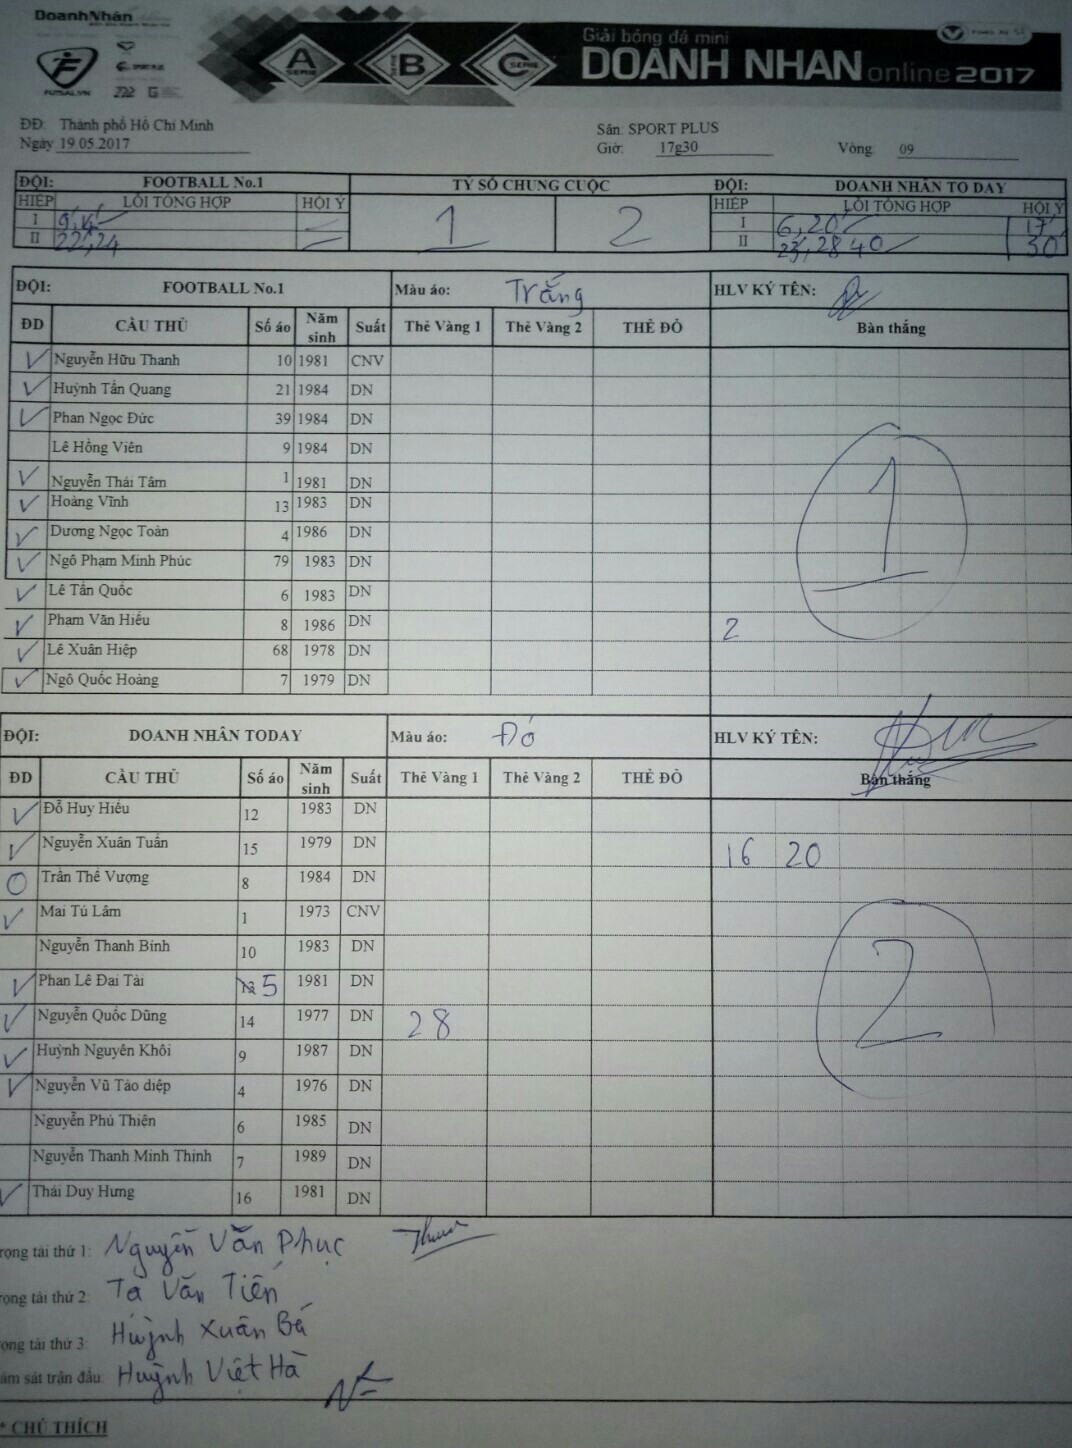 DoanhNhân
FUTSAL.VN
A SERIE
SERIE B
C SERIE
Giải bóng đá mini
DOANH NHAN online 2017
ĐĐ: Thành phố Hồ Chí Minh
Sân: SPORT PLUS
Ngày 19.05.2017
Giờ: 17g30
Vòng 09
ĐỘI: FOOTBALL No.1 TỶ SỐ CHUNG CUỘC ĐỘI: DOANH NHÂN TO DAY
HIỆP LỖI TỔNG HỢP HỘI Ý 1 2 HIỆP LỖI TỔNG HỢP HỘI Ý
I I 6, 20 17
II 22, 24 II 23, 28 40 30
ĐỘI: FOOTBALL No.1 Màu áo: Trắng HLV KÝ TÊN:
ĐD CẦU THỦ Số áo Năm sinh Suất Thẻ Vàng 1 Thẻ Vàng 2 THẺ ĐỎ Bàn thắng
Nguyễn Hữu Thanh 10 1981 CNV
Huỳnh Tấn Quang 21 1984 DN
Phan Ngọc Đức 39 1984 DN
Lê Hồng Viên 9 1984 DN
Nguyễn Thái Tâm 1 1981 DN
Hoàng Vĩnh 13 1983 DN
Dương Ngọc Toàn 4 1986 DN
1
Ngô Phạm Minh Phúc 79 1983 DN
Lê Tấn Quốc 6 1983 DN
Phạm Văn Hiếu 8 1986 DN 2
Lê Xuân Hiệp 68 1978 DN
Ngô Quốc Hoàng 7 1979 DN
ĐỘI: DOANH NHÂN TODAY Màu áo: Đỏ HLV KÝ TÊN:
ĐD CẦU THỦ Số áo Năm sinh Suất Thẻ Vàng 1 Thẻ Vàng 2 THẺ ĐỎ Bàn thắng
Đỗ Huy Hiếu 12 1983 DN
Nguyễn Xuân Tuấn 15 1979 DN 16 20
Trần Thế Vượng 8 1984 DN
Mai Tú Lâm 1 1973 CNV
Nguyễn Thanh Bình 10 1983 DN
Phan Lê Đại Tài 5 1981 DN
2
Nguyễn Quốc Dũng 14 1977 DN 28
Huỳnh Nguyên Khôi 9 1987 DN
Nguyễn Vũ Tảo diệp 4 1976 DN
Nguyễn Phú Thiện 6 1985 DN
Nguyễn Thanh Minh Thịnh 7 1989 DN
Thái Duy Hưng 16 1981 DN
rọng tài thứ 1: Nguyễn Văn Phục
rọng tài thứ 2: Tạ Văn Tiến
ọng tài thứ 3: Huỳnh Xuân Bá
ám sát trận đấu: Huỳnh Việt Hà
* CHÚ THÍCH